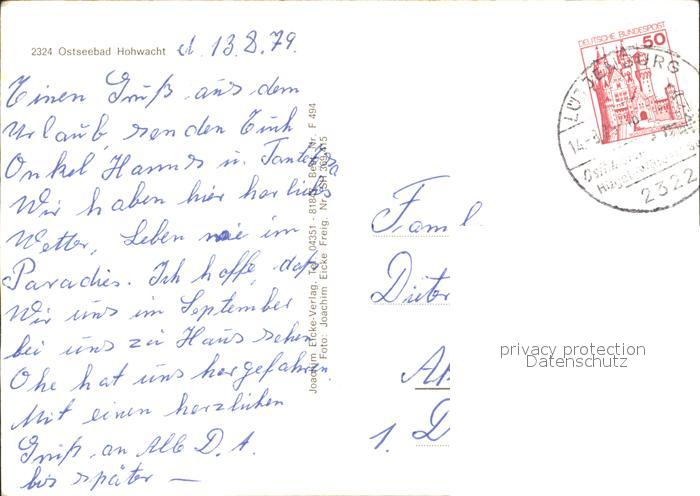 2324 Ostseebad Hohwacht
d. 13.8.79.
Einen Gruß aus dem
Urlaub, senden Euch
Onkel Hannes u. Tante
Wir haben hier herliches
Wetter, Leben wie im
Paradies. Ich hoffe, daß
Wir uns im September
bei uns zu Haus sehen
Ohe hat uns hergefahren
Mit einen herzlichen
Gruß an Alle D. A.
bis später —
Joachim Eicke-Verlag, Tel. 04351 - 8184 Best. Nr. F 494
Foto: Joachim Eicke Freig. Nr. SH
DEUTSCHE BUNDESPOST
50
LÜTJENBURG
2322
Fam
Dieter
1. D
privacy protection
Datenschutz